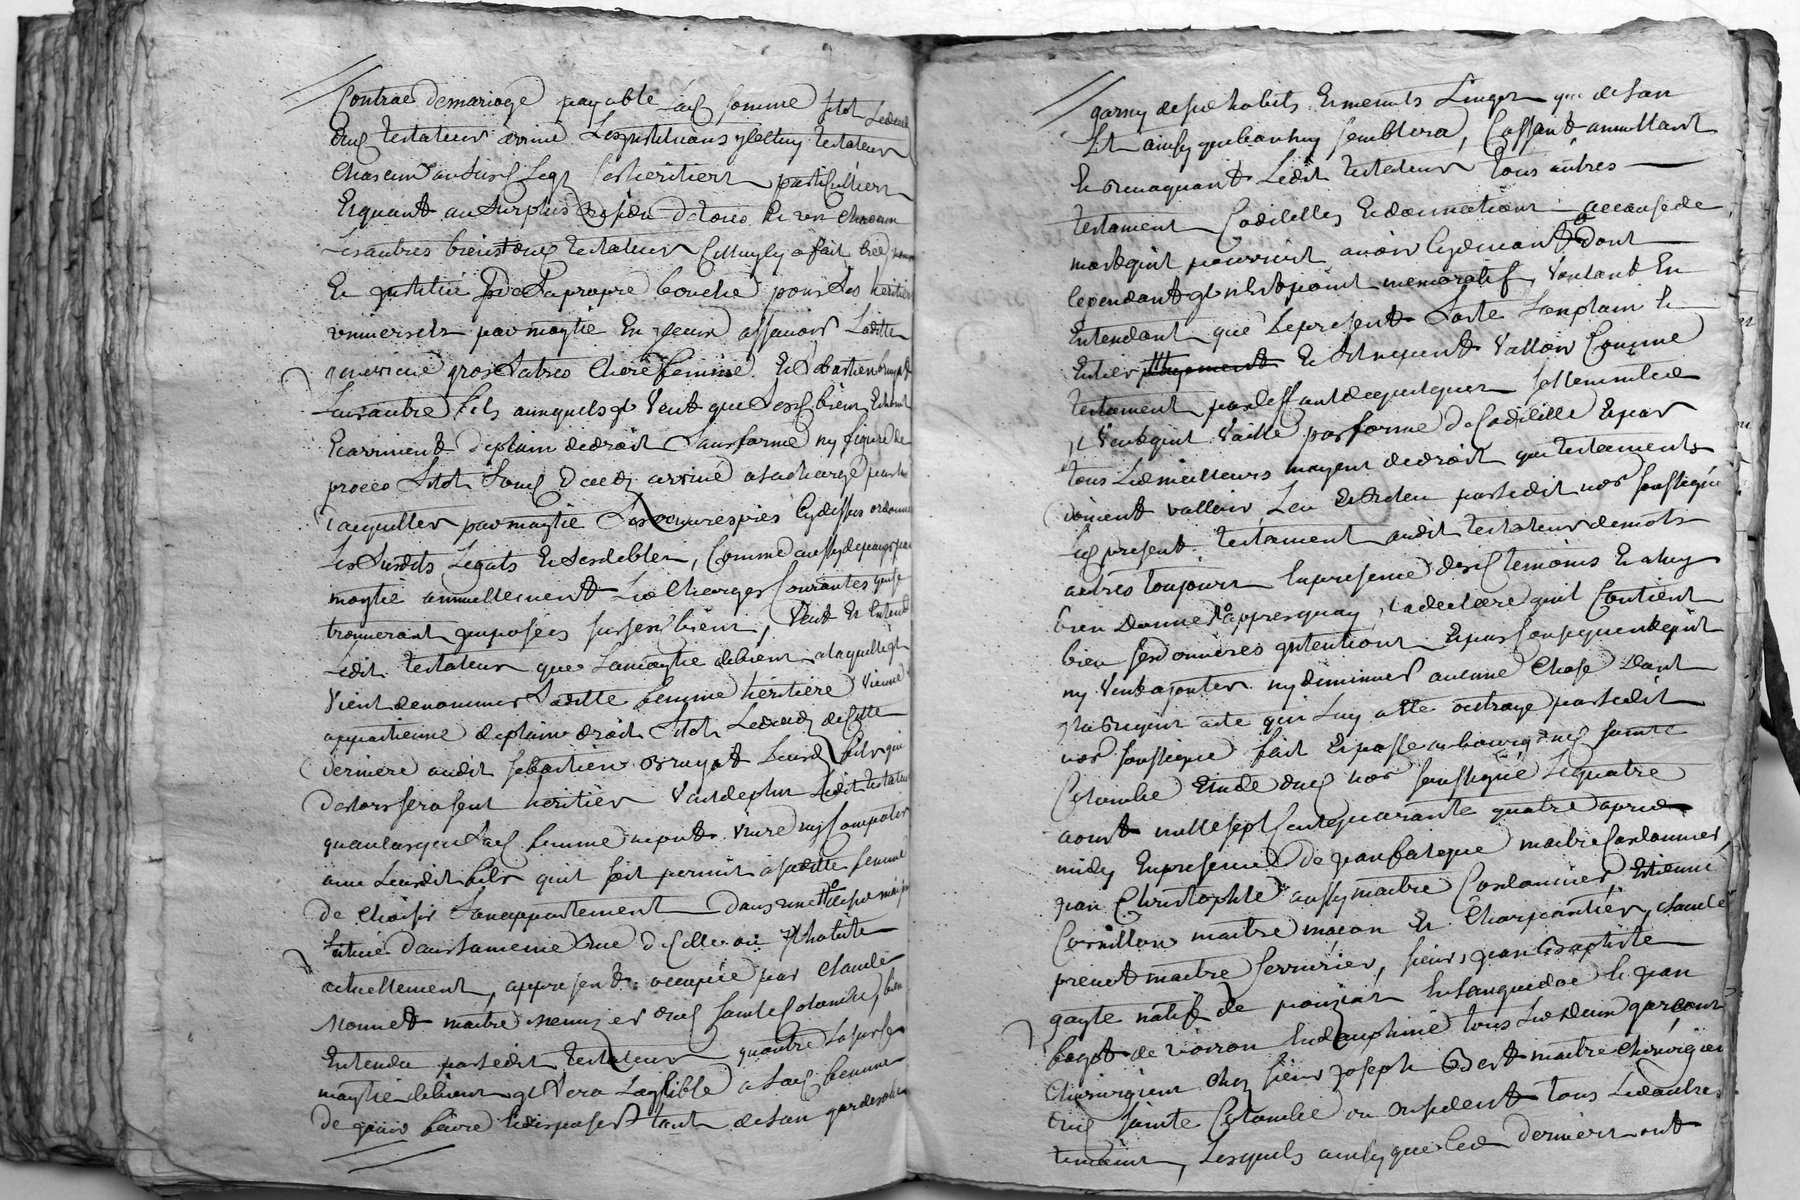 Contrac de mariage payable lad somme sitot Ledeced
dud testateur arrivé Les instituans yceluy testateur
Chascun au susd Legs ses heritiers particulliers
Et quant au surplus residu de tous et un chacun
Les autres biens dud testateur Celluyly a fait
Et institué de sa propre bouche pour ses heritiers
universels par moytié Laditte
gros sa tres chere femme Et Sebastien bruyat
Leur autre fils auxquels il Veut que Sesd biens
Et arrivent de plain de droit Sans forme ny figure de
proces sitot sond deced arrivé a la charge par
d'acquitter par moytié Ses oeuvres pies Cydessus ordonné
Les Susdits Legats Et ses debtes, Comme aussy de payer par
moytié annuellement Les Charges Courantes qui se
trouveront imposées sur ses biens, Veut Et Entend
Ledit testateur que La moytié de biens a laquelle il
Vient de nommer Laditte femme heritiere Vienne
appartienne de plain droit sitot Ledeced de Cette
derniere audit Sebastien Bruyat Leurd fils qui
des lors sera seul heritier Veut de plus Ledit testateur
qu'au cas que Lad femme ne peut Vivre ny Compatir
avec Leurdit fils qu'il soit permis a Laditte femme
de Choisir Son appartement Dans une maison
scituée dans la meme rue de Celle ou il habite
actuellement, a present occupée par Claude
Monnet maitre menuzier dud Sainte Colombe, bien
Entendu par ledit testateur quoutre La susd
moytié de biens il sera Loysible a Lad femme
de faire disposer tant de son garderobe
garny de ses habits Linges que de son
Lit ainsy que bon luy semblera, Cassant annullant
Et revoquant Ledit testateur tous autres
testament Codicilles Et donnations a cause de
mort qu'il pourroit avoir Cydevant dont
Cependant il n'est point memoratif, Voulant Et
Entendant que Le present Sorte Son plain Et
Entier Et Et ne peut Valloir Comme
testament par deffaut de quelques sollemnites
il Veut qu'il Vaille par forme de Codicille Et par
tous Les meilleurs moyens de droit que testaments
doivent valloir Leu Et par ledit nore soussigné
Led present testament audit testateur de mots
autres toujours En presence desd temoins Et a luy
bien Donné apres quoy, il a declaré qu'il Contient
bien ses dernieres intentions Et par Consequent qu'il
ny Veut ajouter ny diminuer aucune Chose Dont
acte qui Luy a été octroyé par ledit
nore soussigné fait Et passé au bourg dud Sainte
Colombe Etude dud nore soussigné Le quatre
aoust mille sept cent quarante quatre apres
midy En presence de maitre Cordonnier,
Jean Christophle aussy maitre Cordonnier, Etienne
Cornillon maitre macon Et Charpantier, Claude
prevot maitre serrurier, sieurs Jean Baptiste
gayte natif de En Languedoc Et Jean
bayot de voiron En dauphiné tous Les deux garcons
Chirurgiens Chez sieur Joseph Bert maitre Chirurgien
dud Sainte Colombe ou resident tous Les autres
temoins, Lesquels ainsy que Les derniers ont